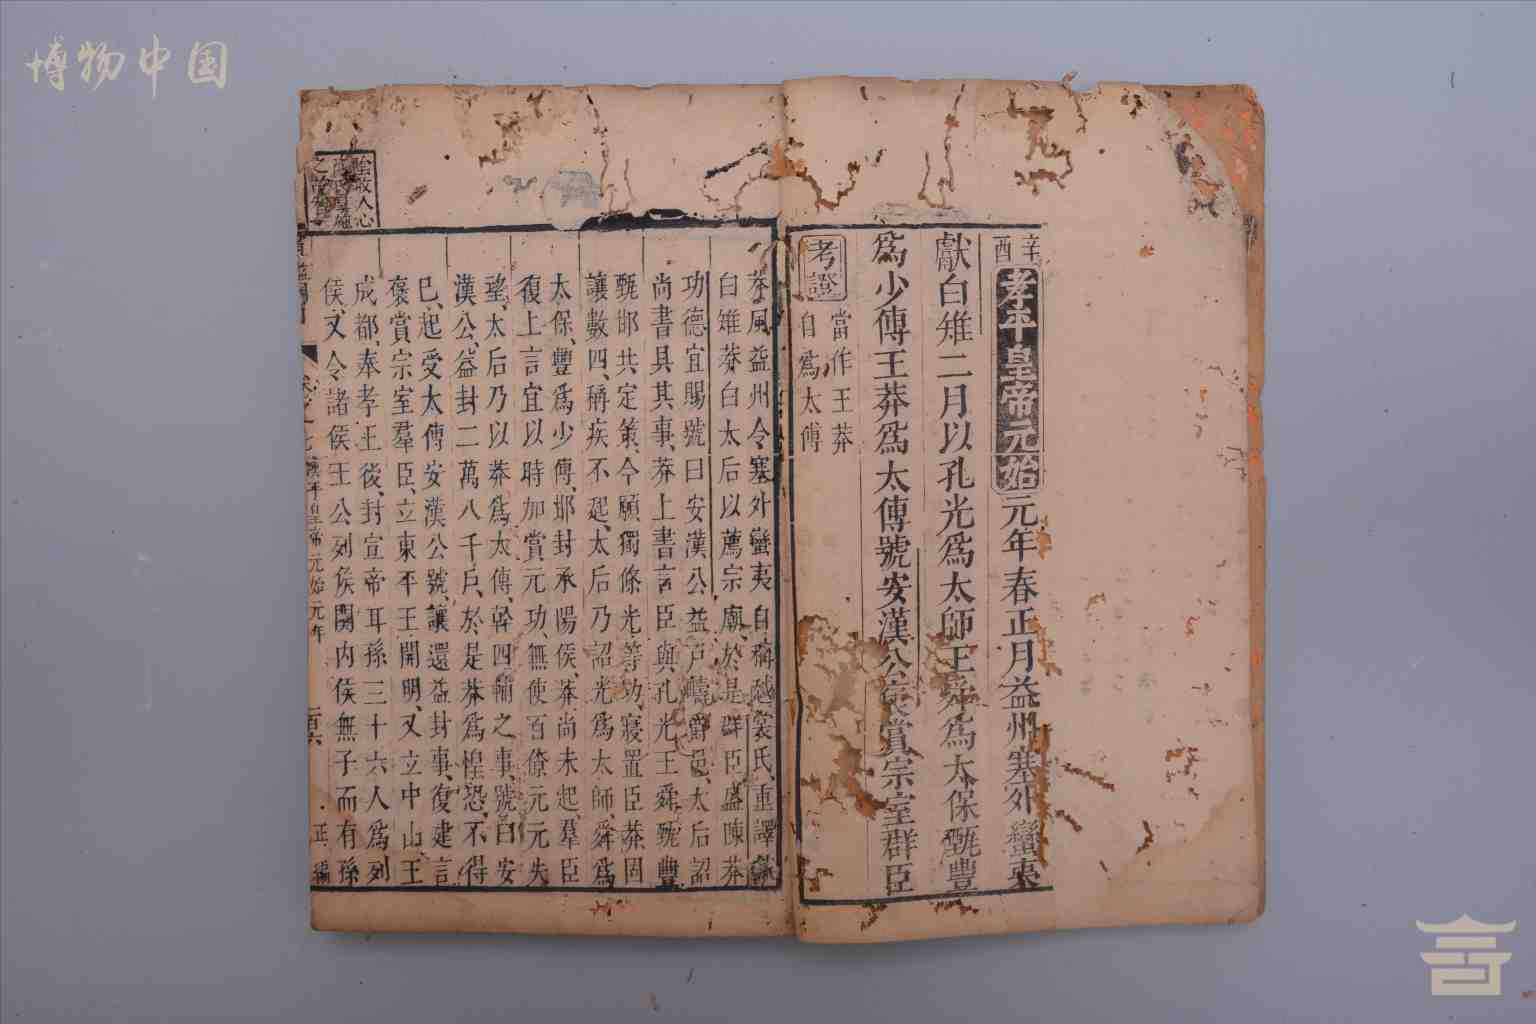 博物中国
辛酉
孝平皇帝元始元年春正月益州塞外蠻夷
獻白雉二月以孔光爲太師王舜爲太保甄豐
爲少傅王莽爲太傅號安漢公褒賞宗室群臣
考證
當作王莽
自爲太傅
莽風益州令塞外蠻夷自稱越裳氏重譯獻
白雉莽白太后以薦宗廟於是群臣盛陳莽
功德宜賜號曰安漢公益戸疇爵邑太后詔
尚書具其事莽上書言臣與孔光王舜甄豐
甄邯共定策今願獨條光等功寢置臣莽固
讓數四稱疾不起太后乃詔光爲太師舜爲
太保豐爲少傅邯封承陽侯莽尚未起羣臣
復上言宜以時加賞元功無使百僚元元失
望太后乃以莽爲太傅幹四輔之事號曰安
漢公益封二萬八千戸於是莽爲惶恐不得
已起受太傅安漢公號讓還益封事復建言
褒賞宗室羣臣立東平王開明又立中山王
成都奉孝王後封宣帝耳孫三十六人爲列
侯又令諸侯王公列侯關內侯無子而有孫
卷之七
漢平皇帝元始元年
百六
正編
收人心
之